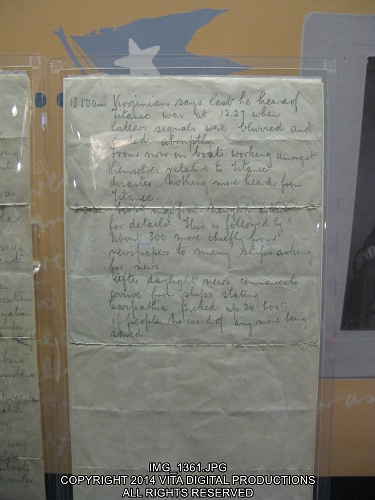 1.30 am Virginian says last he heard of
Titanic was at 12.27 when
latters signals were blurred and
ended abruptly.
From now on boats working amongst
themselves relative to Titanic
disaster. Nothing more heard from
Titanic.
first msg from New York asking
for details. This is followed by
about 300 more chiefly from
newspapers to many ships asking
for news
After daylight news commences to
arrive from ships stating
Carpathia picked up 20 boats
of people. No word of any more being
saved.
IMG_1361.JPG
COPYRIGHT 2014 VITA DIGITAL PRODUCTIONS
ALL RIGHTS RESERVED